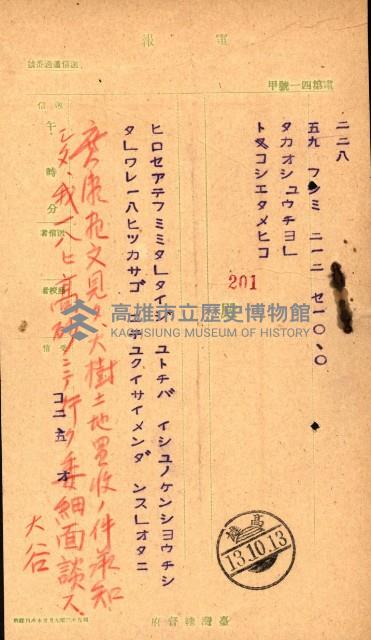 電報
電第四一號甲
二二八
五九 フシミ 二一二 セ一〇、〇
タカオシユウチヨ」
トダコシエタメヒコ
201
ヒロセアテフミミタ」タイジユトチバイシユノケンシヨウチシ
タ」ワレ一八ヒツカサゴニテユクイサイメンダンス」オタニ
コ二、五 オ
廣瀬宛文見タ、大樹土地買收ノ件承知
シタ、我一八ヒ高砂ニテ行ク委細面談ス、
大谷
午時分
高雄
13.10.13
臺灣總督府
高雄市立歷史博物館
KAOHSIUNG MUSEUM OF HISTORY